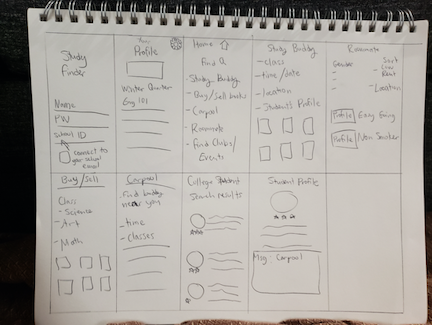 Study
Finder
Name
PW
School ID
connect to
your school
email
Your
Profile
Winter Quarter
Eng 101
Home
Find
- Study Buddy
- Buy/Sell books
- Carpool
- Roommate
- Find Clubs/
Events
Study Buddy
- class
- time/date
- location
- Students Profile
Roommate
Gender
Sort
Low
Rent
- Location
Profile Easy Going
Profile Non Smoker
Buy/Sell
Class
- Science
- Art
- Math
Carpool
Find buddy
near you
- time
- classes
College Student
Search results
Student Profile
Msg: Carpool